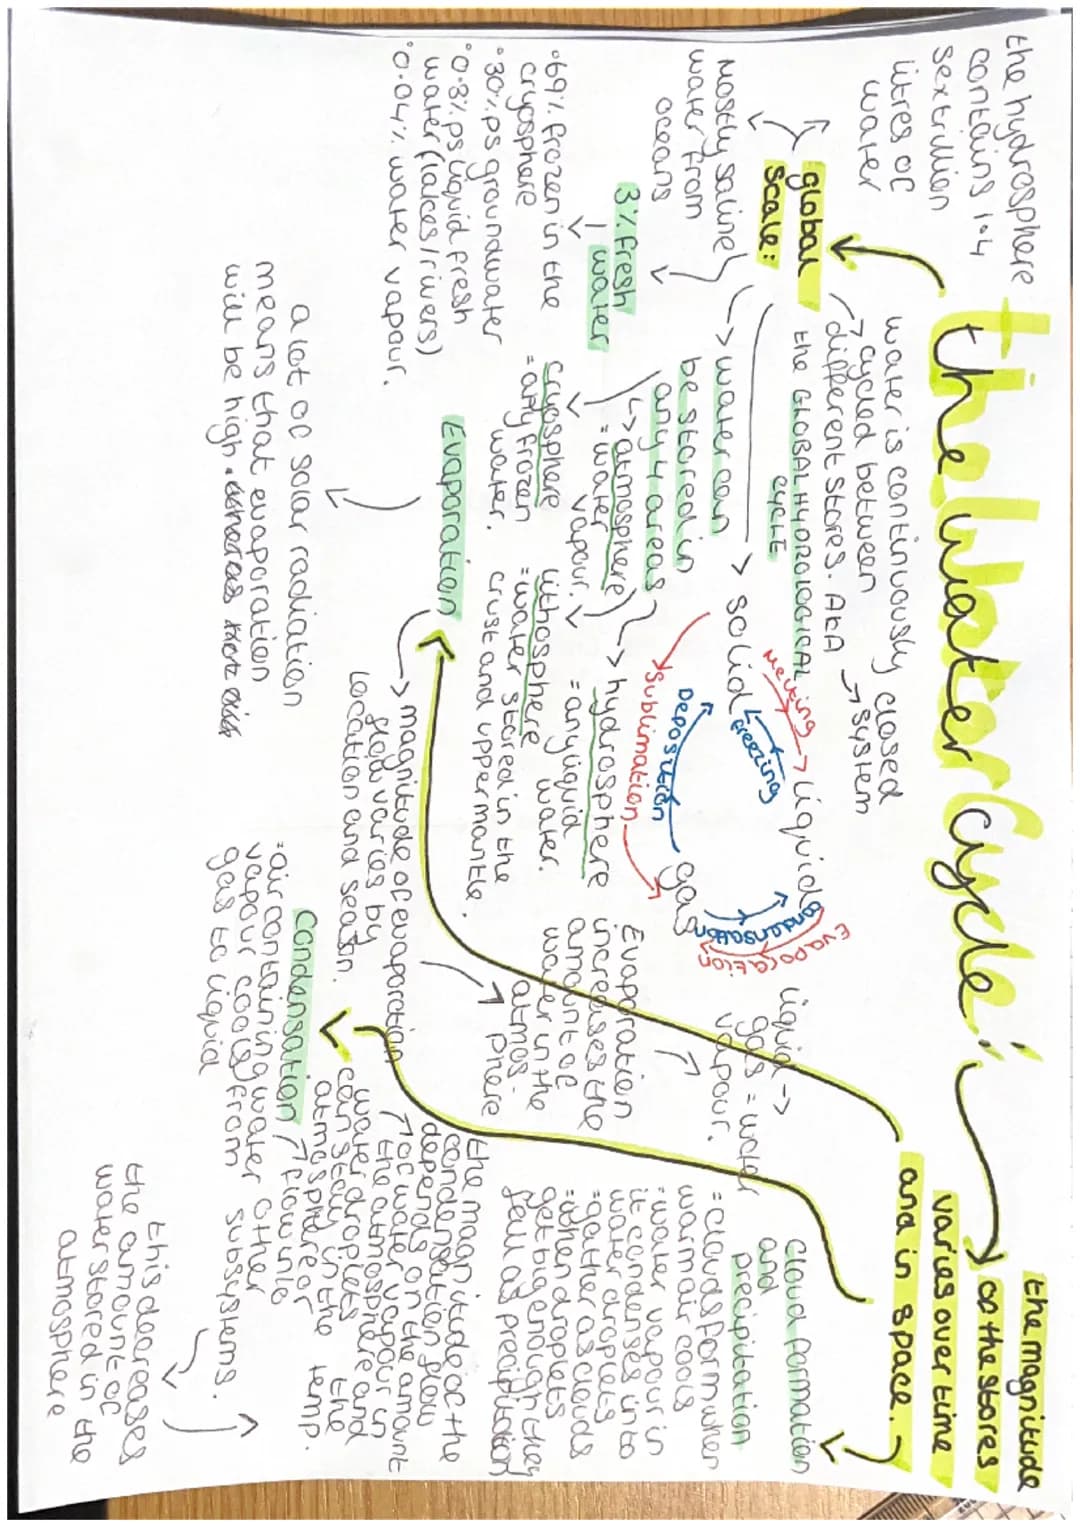 the Water Cycle:
the hydrosphere
contains 1.4
sextrillion
litres of
water
global
scale:
mostly saline
water from
oceans
3% fresh
water
°69% frozen in the
cryosphere
°30% ps groundwater
°0.3% ps liquid fresh
water (lakes/rivers)
°0.04% water vapour.
water is continuously
cycled between
different stores. AKA
the GLOBAL HYDROLOGICAL
CYCLE
closed
system
water can
be stored in
any 4 areas
atmosphere
= water
vapour.
cryosphere
= any frozen
water.
hydrosphere
= any liquid
water.
lithosphere
= water stored in the
crust and upper mantle.
solid
melting
freezing
liquid
sublimation
Deposition
gas
condensation
Evaporation
liquid ->
gas = water
vapour.
Evaporation
increases the
amount of
water in the
atmos-
phere
Evaporation
magnitude of evaporation
flow varies by
location and season.
a lot of solar radiation
means that evaporation
will be high.
the magnitude
of the stores
varies over time
and in space.
cloud formation
and
precipitation
= clouds form when
warm air cools
= water vapour in
it condenses into
water droplets
= gather as clouds
= when droplets
get big enough they
fall as precipitation
Condensation
= air containing water
vapour cools from
gas to liquid
the magnitude of the
condensation flow
depends on the amount
of water vapour in
the atmosphere and
the temp.
water droplets
can stay in the
atmosphere or
flow into
other
subsystems.
this decreases
the amount of
water stored in the
atmosphere